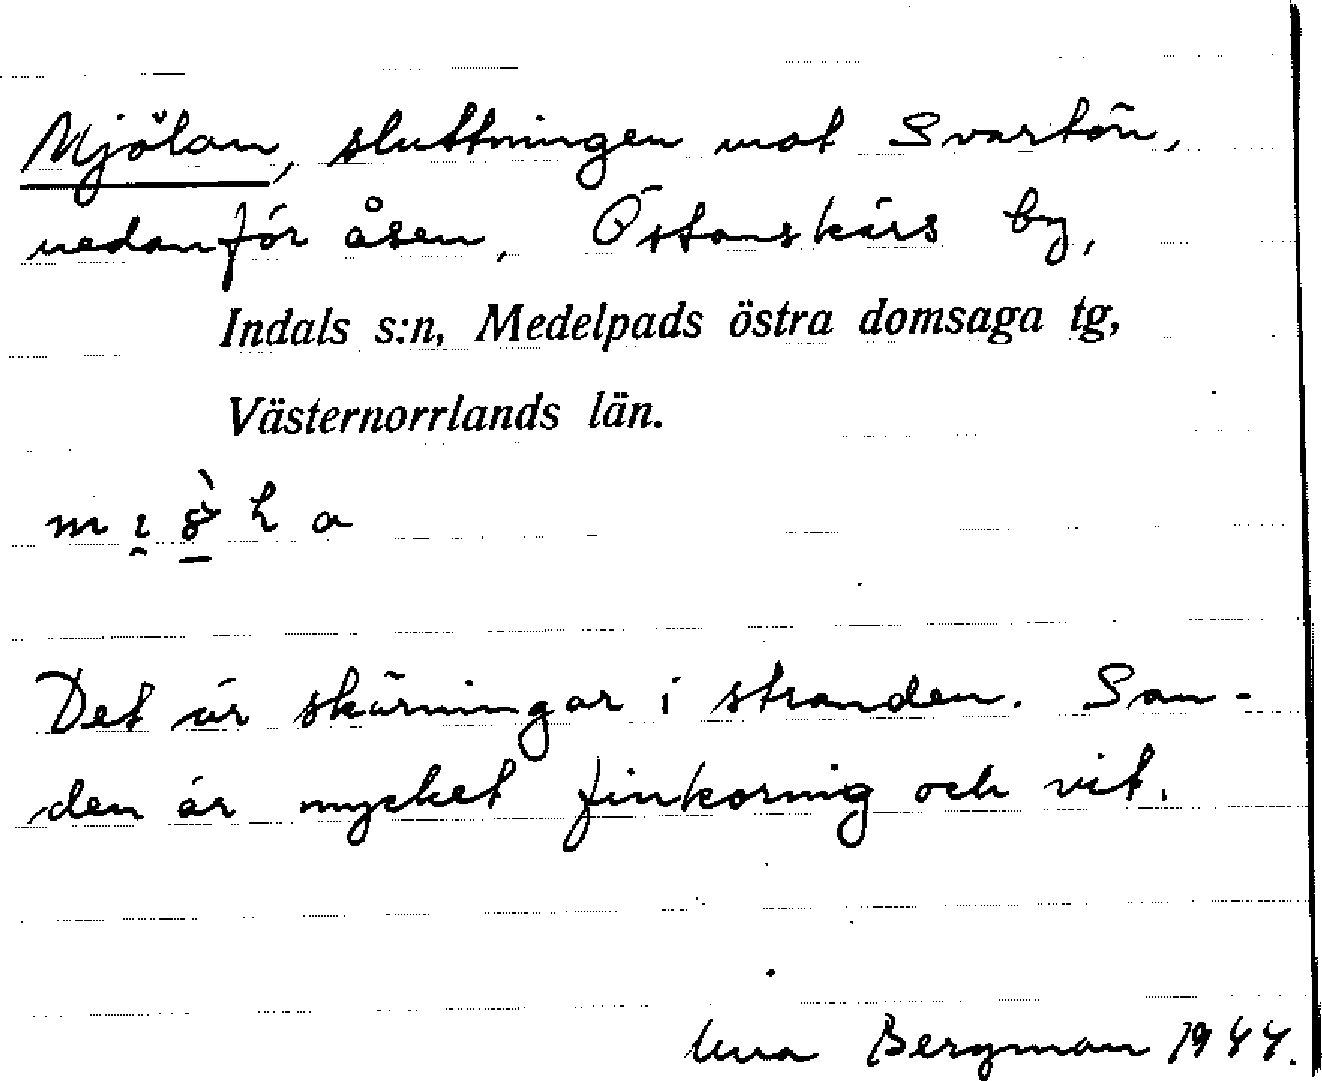 Mjölan, sluttningen mot Svartön,
nedanför åsen, Östanskärs by,
Indals s:n, Medelpads östra domsaga tg,
Västernorrlands län.
Det är skärningar i stranden. San-
den är mycket finkornig och vit.
Bergman 1944.